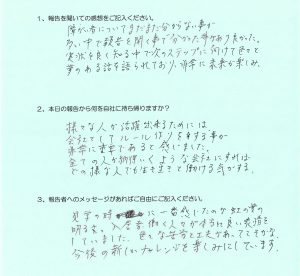 1、報告を聞いての感想をご記入ください。
障がい者についてまだまだ分からない事が
多い中で報告を聞く事が分かった事があり良かった。
実状を良く知る中で次のステップに向けて色々と
夢のある話を語られており、非常に未来が楽しみ。
2、本日の報告から何を自社に持ち帰りますか?
様々な人が活躍出来るためには
会社としてルール作りをする事が
非常に重要であると感じました。
全ての人が納得いくような会社にすれば
どの様な人でも生き生きと働ける気がする。
3、報告者へのメッセージがあればご自由にご記入ください。
見学の時に一番感じたのが虹の夢の
明るさ。入居者働く人々がみな良い表情を
していました。色々な苦労と工夫があってこそかな。
今後の新しいチャレンジを楽しみにしています。